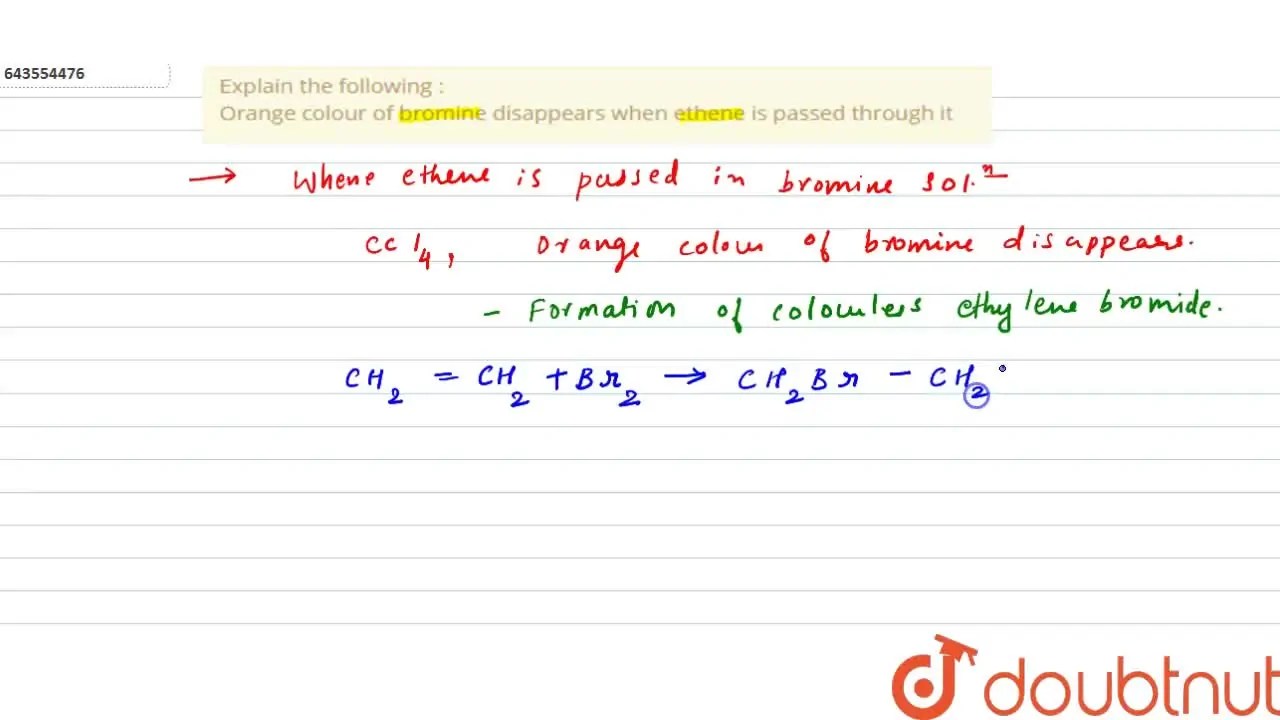 643554476
Explain the following :
Orange colour of bromine disappears when ethene is passed through it
→ Whene ethene is passed in bromine sol.n
CCl4, Orange colour of bromine disappears.
- Formation of colourless ethylene bromide.
CH2 = CH2 + Br2 → CH2Br - CH2
doubtnut